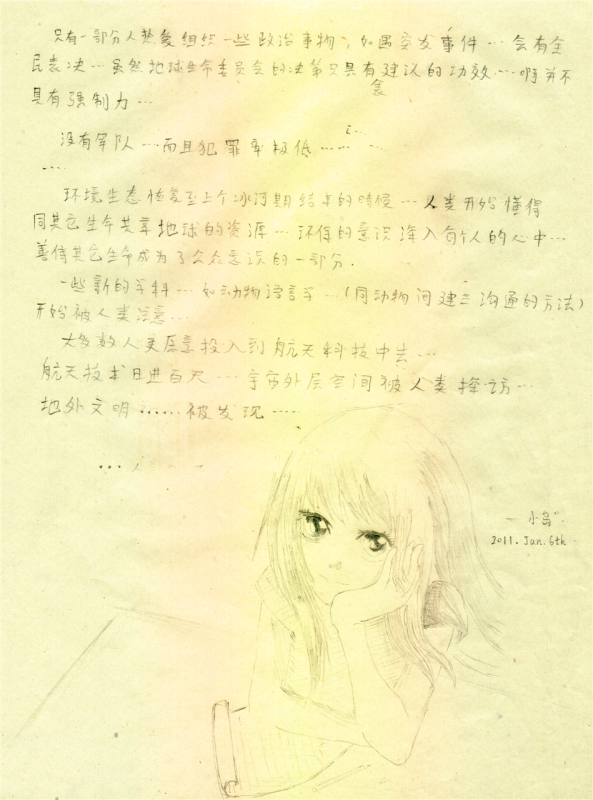 只有一部分人热爱组织一些政治事物，如遇突发事件…会有全
民表决…虽然地球生命委员会的决策只具有建议的功效…啊并不
具有强制力…
没有军队…而且犯罪率极低……
…
环境生态恢复至上个冰河期结束的时候…人类开始懂得
同其它生命共享地球的资源…环保的意识深入每个人的心中…
善待其它生命成为了公众意识的一部分.
一些新的学科…如动物语言学…(同动物间建立沟通的方法)
开始被人类注意…
大多数人类愿意投入到航天科技中去…
航天技术日进百尺…宇宙外层空间被人类探访…
地外文明……被发现…
…
—小岛
2011. Jan. 6th